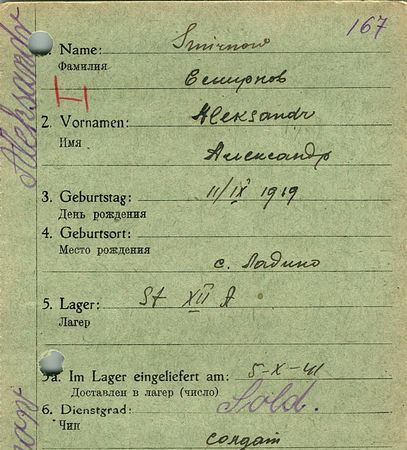 167
1. Name: Smirnow
Фамилия
Смирнов
2. Vornamen: Aleksandr
Имя
Александр
3. Geburtstag: 11/IX 1919
День рождения
4. Geburtsort:
Место рождения
с. Ладино
5. Lager: St XII A
Лагер
5a. Im Lager eingeliefert am: 5-X-41
Доставлен в лагер (число)
6. Dienstgrad: Sold.
Чин
солдат
Aleksandr